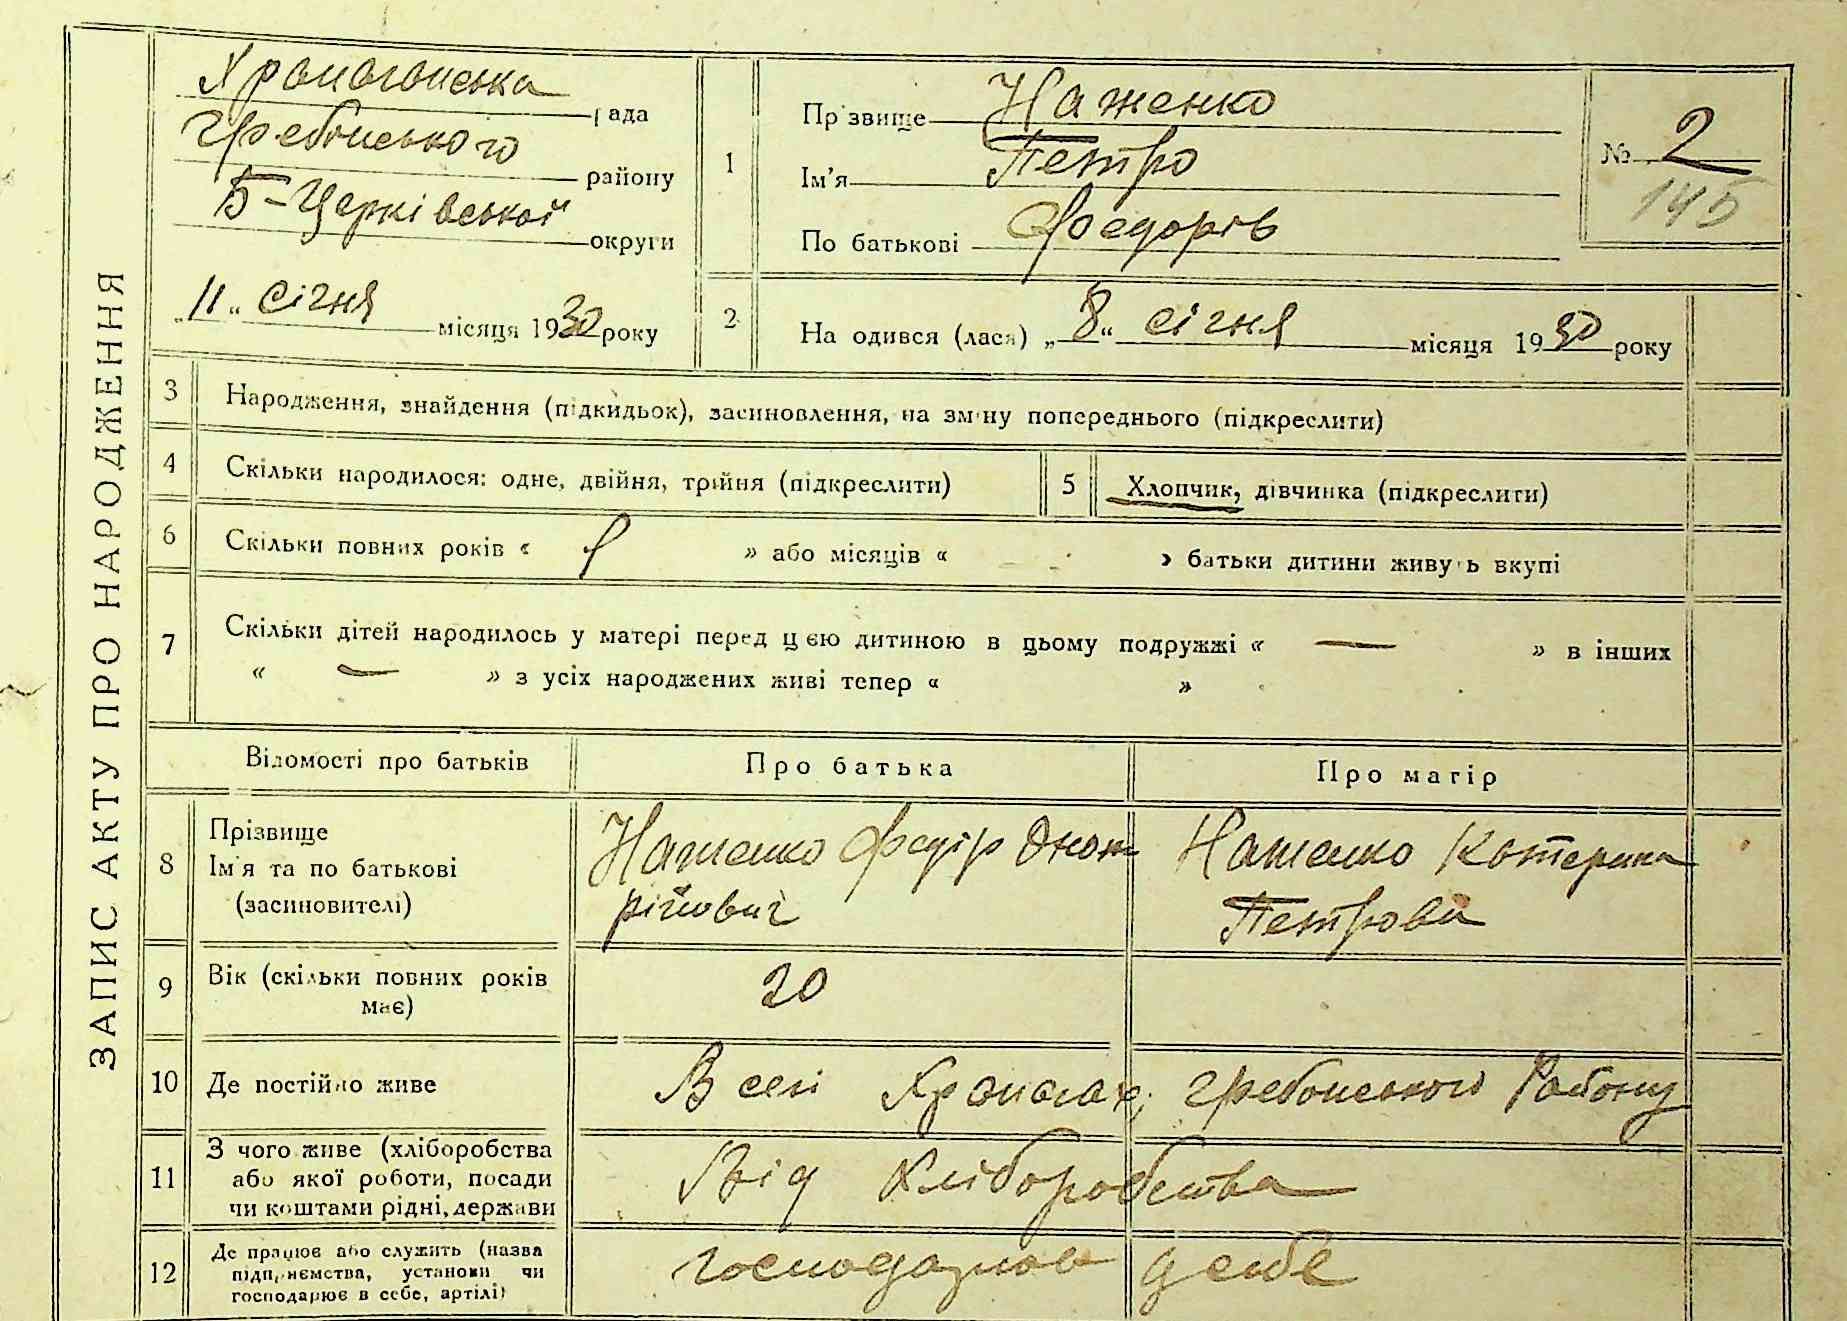 ЗАПИС АКТУ ПРО НАРОДЖЕННЯ
рада
Гребінського району
Б-Церківської округи
"11" січня місяця 1930 року
1
Прізвище Наженко
Ім'я Петро
По батькові Федорів
№ 2
145
2
На одився (лася) „8" січня місяця 1930 року
3 Народження, знайдення (підкидьок), засиновлення, на зміну попереднього (підкреслити)
4 Скільки народилося: одне, двійня, трійня (підкреслити)
5 Хлопчик, дівчинка (підкреслити)
6 Скільки повних років « » або місяців « » батьки дитини живуть вкупі
7 Скільки дітей народилось у матері перед цєю дитиною в цьому подружжі « — » в інших
« — » з усіх народжених живі тепер « »
Відомості про батьків Про батька Про матір
8 Прізвище
Ім'я та по батькові
(засиновителі)
Наженко Федір
Наженко Катерина
Петрова
9 Вік (скільки повних років
має)
20
10 Де постійно живе
В селі Гребінського Району
11 З чого живе (хліборобства
або якої роботи, посади
чи коштами рідні, держави
Від Хліборобства
12 Де працює або служить (назва
підприємства, установи чи
господарює в себе, артілі)